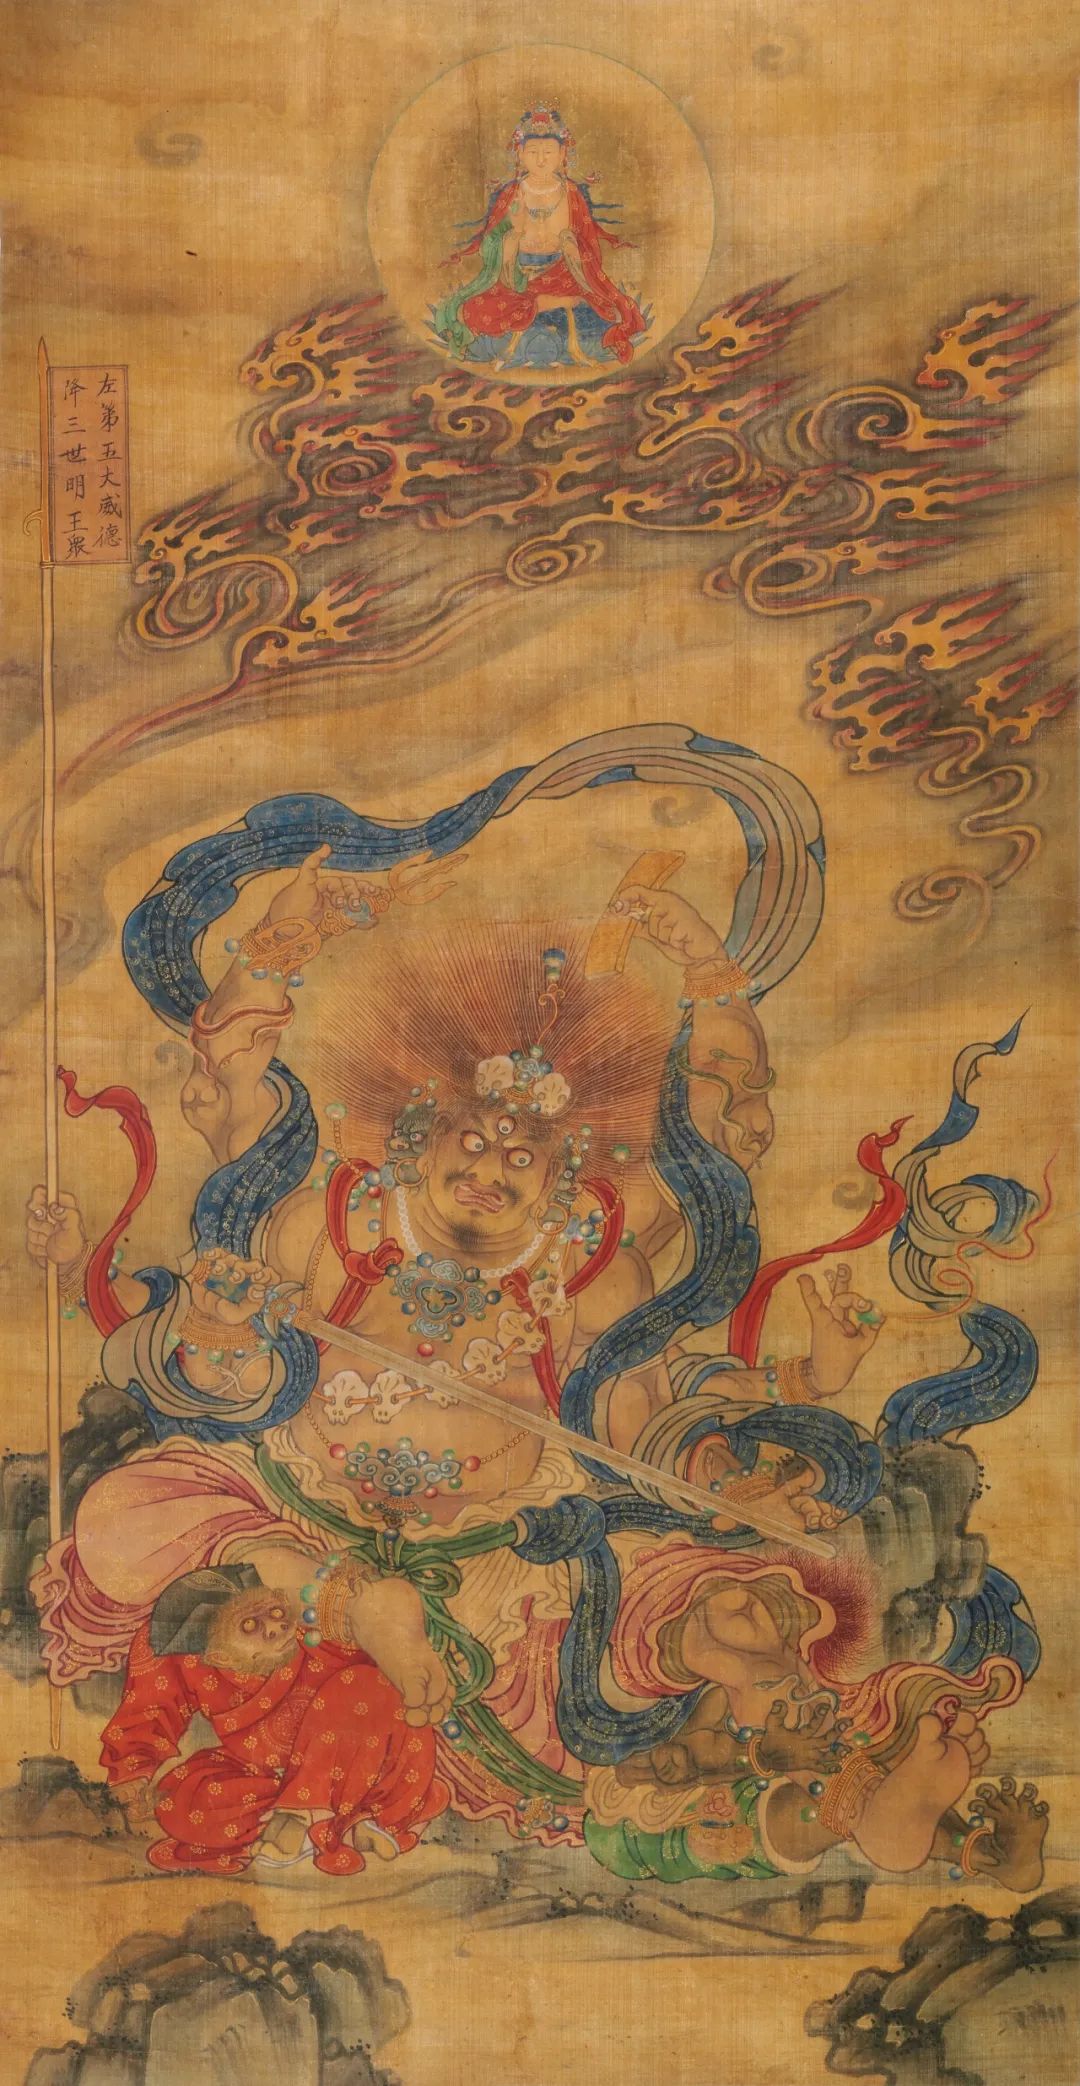 左第五大威德
降三世明王眾